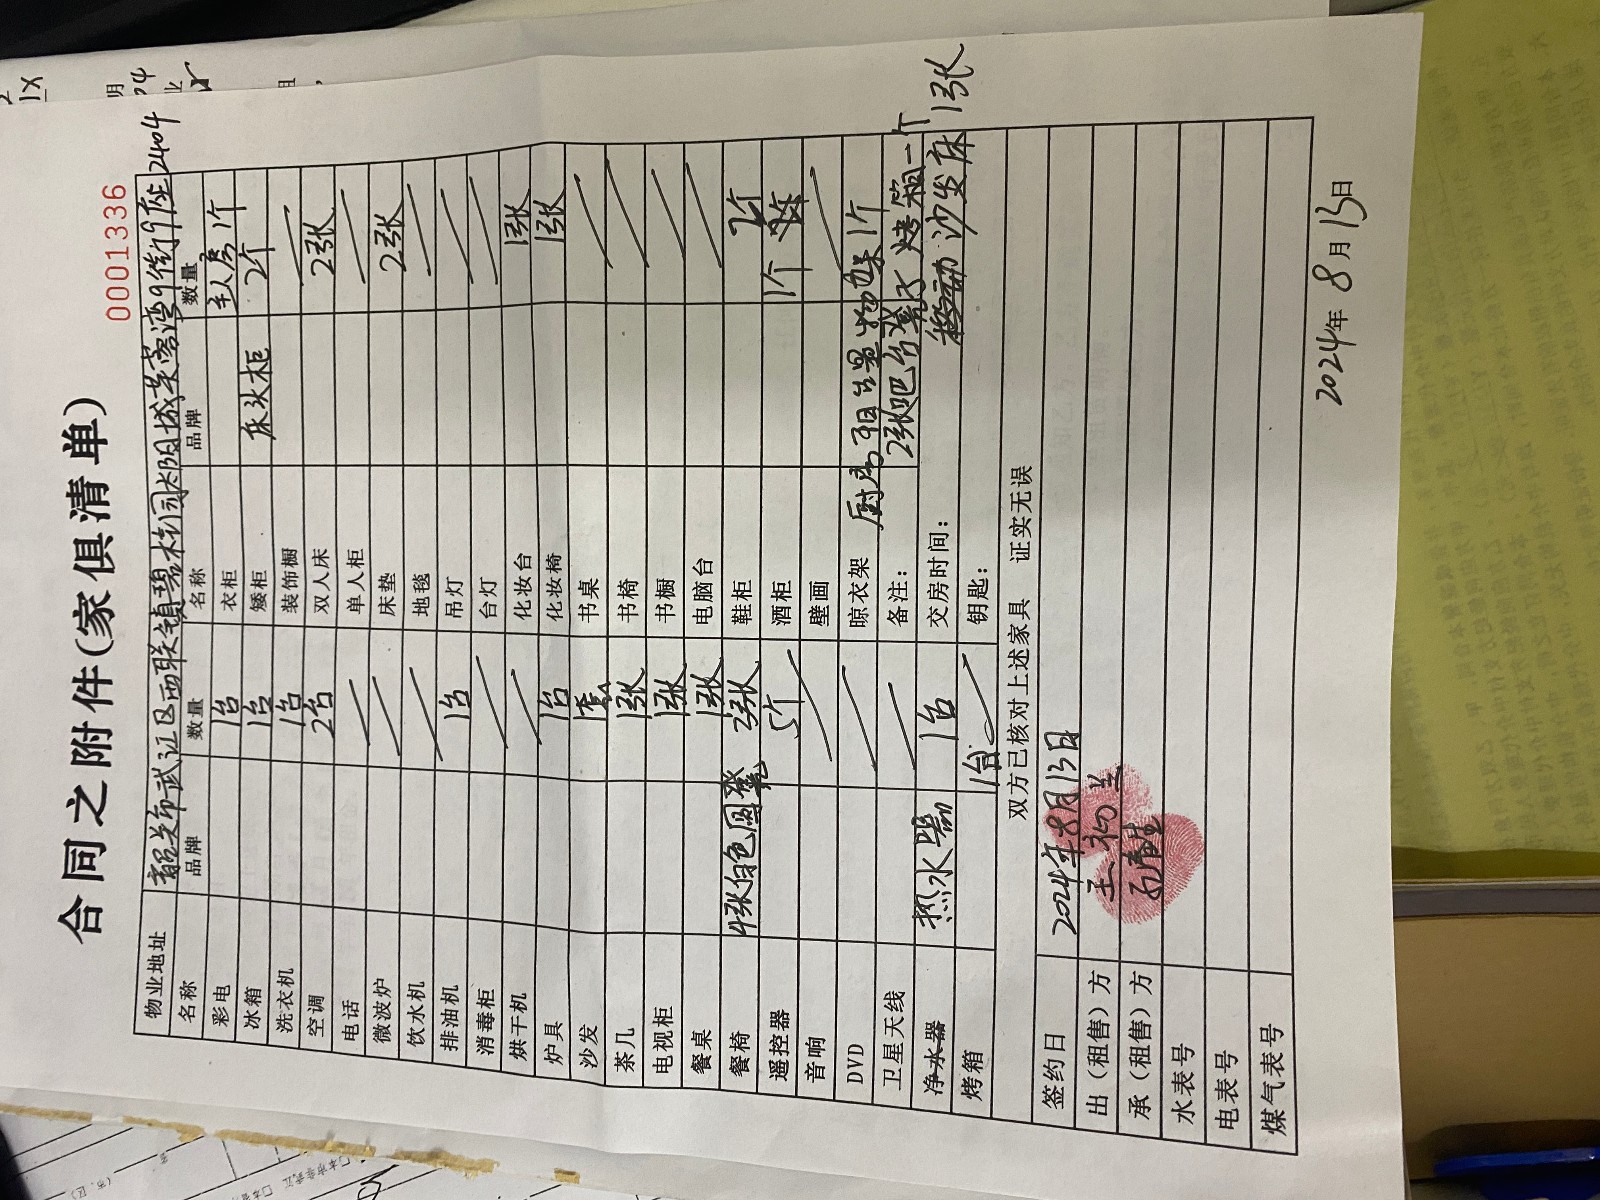 0001336
合同之附件(家俱清单)
物业地址 韶关市武江区西联镇碧桂园太阳城芙蓉湾9街9座2404
名称 品牌 数量 名称 品牌 数量
彩电 1台 衣柜 主人房1个
冰箱 1台 矮柜 床头柜 2个
洗衣机 1台 装饰橱
空调 2台 双人床 2张
电话 单人柜
微波炉 床垫 2张
饮水机 地毯
排油机 1台 吊灯
消毒柜 台灯
烘干机 化妆台 1张
炉具 1台 化妆椅 1张
沙发 1套 书桌
茶几 1张 书椅
电视柜 1张 书橱
餐桌 1张 电脑台
餐椅 4张白色圆凳 2张 鞋柜
遥控器 5个 酒柜 1个
音响 壁画
DVD 晾衣架 厨房 置物架1个
卫星天线 备注: 2张吧台凳子 烤箱一个
净水器 热水器 1台 交房时间: 沙发床 1张
烤箱 1台 钥匙:
双方已核对上述家具 证实无误
签约日 2024年8月13日
出(租售)方
承(租售)方
水表号
电表号
煤气表号
2024年8月13日